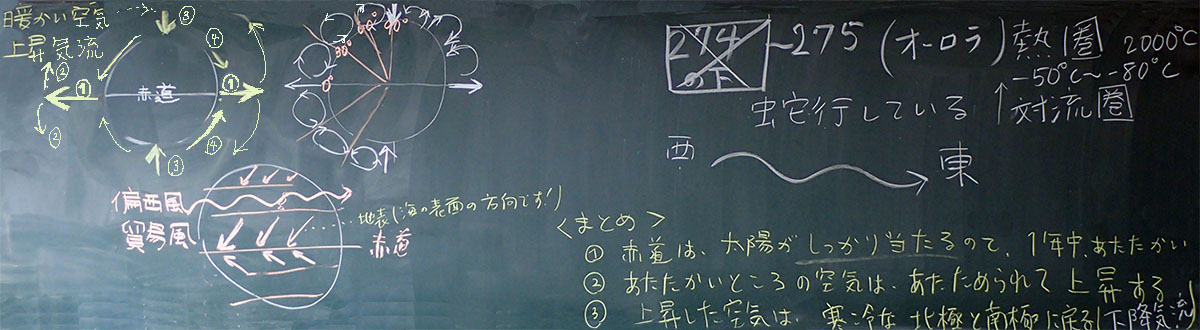 暖かい空気……
上昇気流
③
④
②
①
赤道
①
②
④
③
0°
30°
60°
90°
偏西風
貿易風
……地表(海の表面の方向です!)
赤道
274の下
~275(オーロラ)熱圏 2000℃
-50℃~-80℃
蛇行している
↑対流圏
西
東
<まとめ>
① 赤道は、太陽がしっかり当たるので、1年中、あたたかい
② あたたかいところの空気は、あたためられて上昇する
③ 上昇した空気は、寒冷な北極と南極に戻る(下降気流)